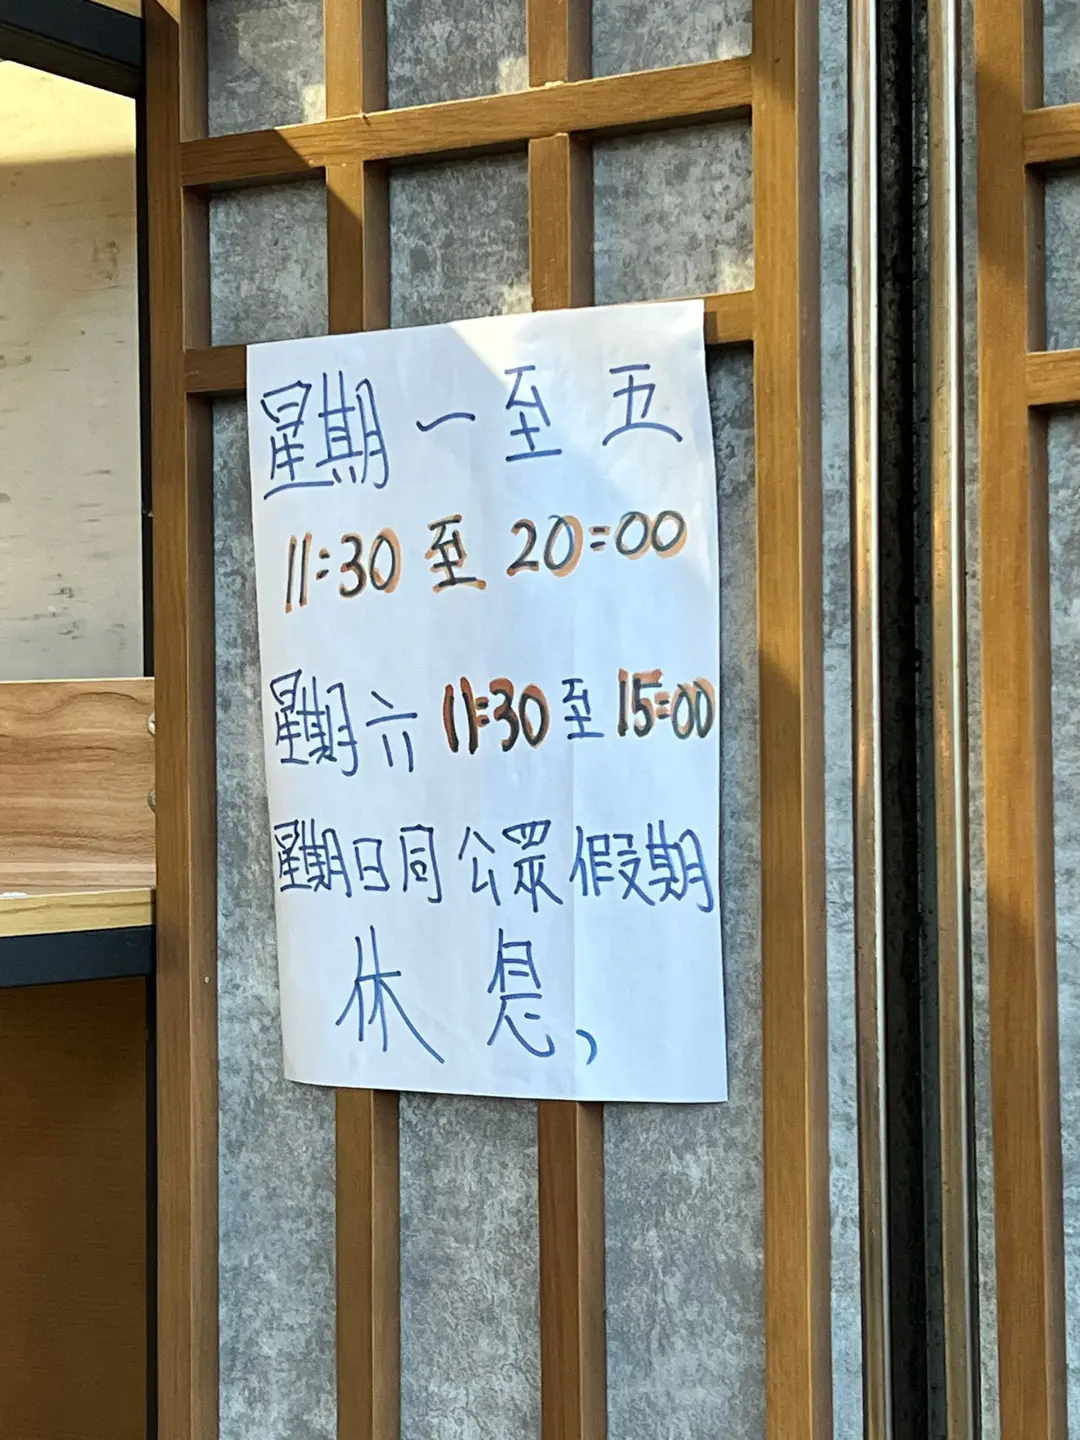 星期一至五
11:30 至 20:00
星期六 11:30 至 15:00
星期日同公眾假期
休息、